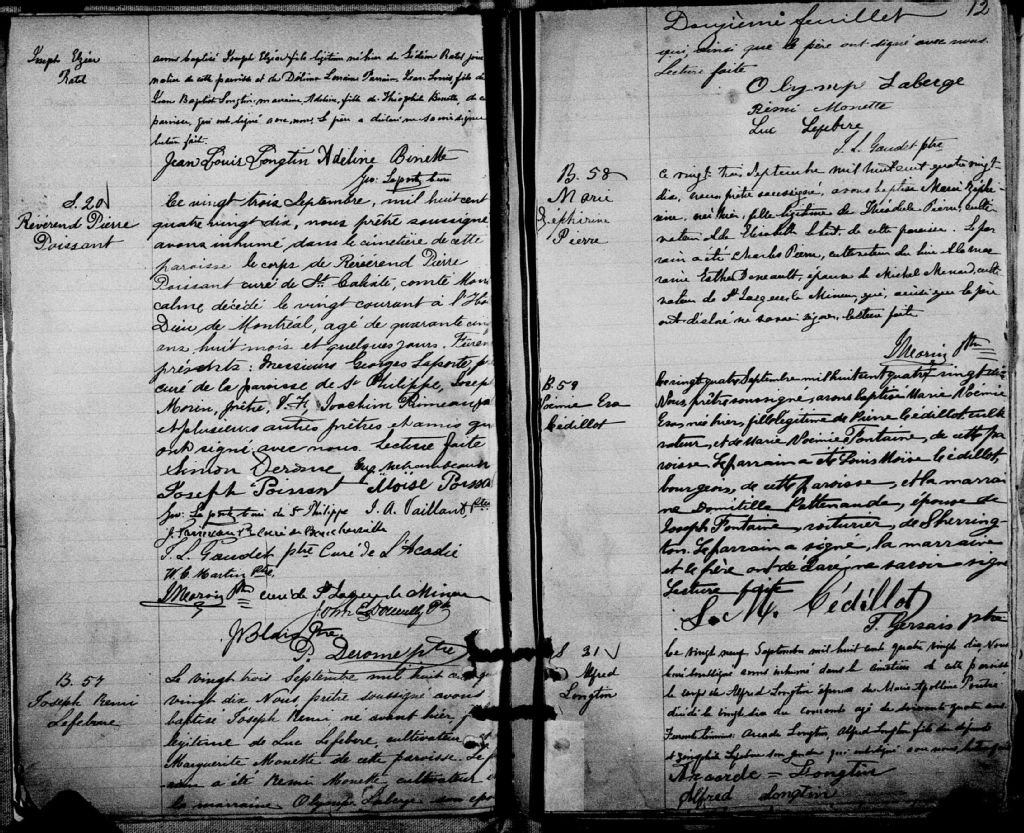 Joseph Uzéar
Ratel
avons baptisé Joseph Uzéar fils légitime né hier de Gédéon Ratel jour
nalier de cette paroisse et de Délima Parrain, Jean Louis, fils de
Jean Baptiste Longtin, marraine, Adeline, fille de Théophile Binette, de ce
paroisse, qui ont signé avec nous, le père a déclaré ne savoir signer
Lecture faite.
Jean Louis Longtin Adéline Binette
Geo: Laporte curé
S. 20
Reverend Pierre
Poissant
Ce vingt trois Septembre, mil huit cent
quatre vingt dix, nous prêtre soussigné
avons inhumé dans le cimetière de cette
paroisse le corps de Reverend Pierre
Poissant curé de St. Calixte, comté Mont
calm, décédé le vingt courant à l'Hô
Dieu de Montréal, agé de quarante cinq
ans huit mois et quelques jours. Furent
présents: Messieurs Georges Laporte p
curé de la paroisse de St Philippe, Joseph
Morin, prêtre, V.F. Joachim Primeau
et plusieurs autres prêtres et amis qui
ont signé avec nous. Lecture faite
Simon Derome
Joseph Poissant Moïse Poissa
Geo: Laporte curé de St Philippe J. A. Vaillant, Ptre
J. Primeau Ptr Curé de Boucherville
T. L. Gaudet ptre Curé de L'Acadie
W. C. Martin Ptre,
J Morin Ptre curé de St Jacques le Mineur
John E. Donnelly Ptr
J Blais Ptre.
P. Derome ptre
B. 57
Joseph Remi
Lefebvre
Le vingt trois Septembre mil huit c
vingt dix Nous prêtre soussigné avons
baptisé Joseph Remi né avant hier, f
légitime de Luc Lefebvre, cultivateur et
Marguerite Monette de cette paroisse. Le p
rain a été Remi Monette, cultivateur et
la marraine Olympe Laberge son epo
12
Douzième feuillet
qui ainsi que le père ont signé avec nous.
Lecture faite
Olymp Laberge
Rémi Monette
Luc Lefebvre
T. L. Gaudet ptre
B. 58
Marie
Zéphirine
Pierre
Ce vingt trois Septembre mil huit cent quatre vingt
dix, nous prêtre soussigné, avons baptisé Marie Zéphi
rine, née hier, fille légitime de Théodule Pierre, culti
vateur et de Elisabeth de cette paroisse. Le par
rain a été Charles Pierre, cultivateur du lieu et la mar
raine Esther Deneault, épouse de Michel Menard, culti
vateur de St Jacques le Mineur, qui, ainsi que le père
ont déclaré ne savoir signer. Lecture faite
J Morin Ptre
B. 59
Noémie Eva
Cédillot
Le vingt quatre Septembre mil huit cent quatre vingt dix
Nous prêtre soussigné, avons baptisé Marie Noémie
Eva, née hier, fille légitime de Pierre Cédillot culti
vateur, et de Marie Noémie Fontaine, de cette pa
roisse. Le parrain a été Louis Moïse Cédillot,
bourgeois, de cette paroisse, et la marrai
ne Domitille Pattenaude, épouse de
Joseph Fontaine, voiturier, de Sherring-
ton. Le parrain a signé, la marraine
et le père ont déclaré ne savoir signer
Lecture faite
L. M. Cédillot
T. Gervais ptre
S 31
Alfred
Longtin
Le vingt neuf Septembre mil huit cent quatre vingt dix Nous
soussigné avons inhumé dans le cimetière de cette paroisse
le corps de Alfred Longtin époux de Marie Apolline Poutré
décédé le vingt six du courant agé de soixante quatre ans
Furent témoins: Arcade Longtin, Alfred Longtin fils du défunt
et Lefebvre son gendre qui ont signé avec nous, lecture faite
Akaarde = Longtin
Alfred Longtin